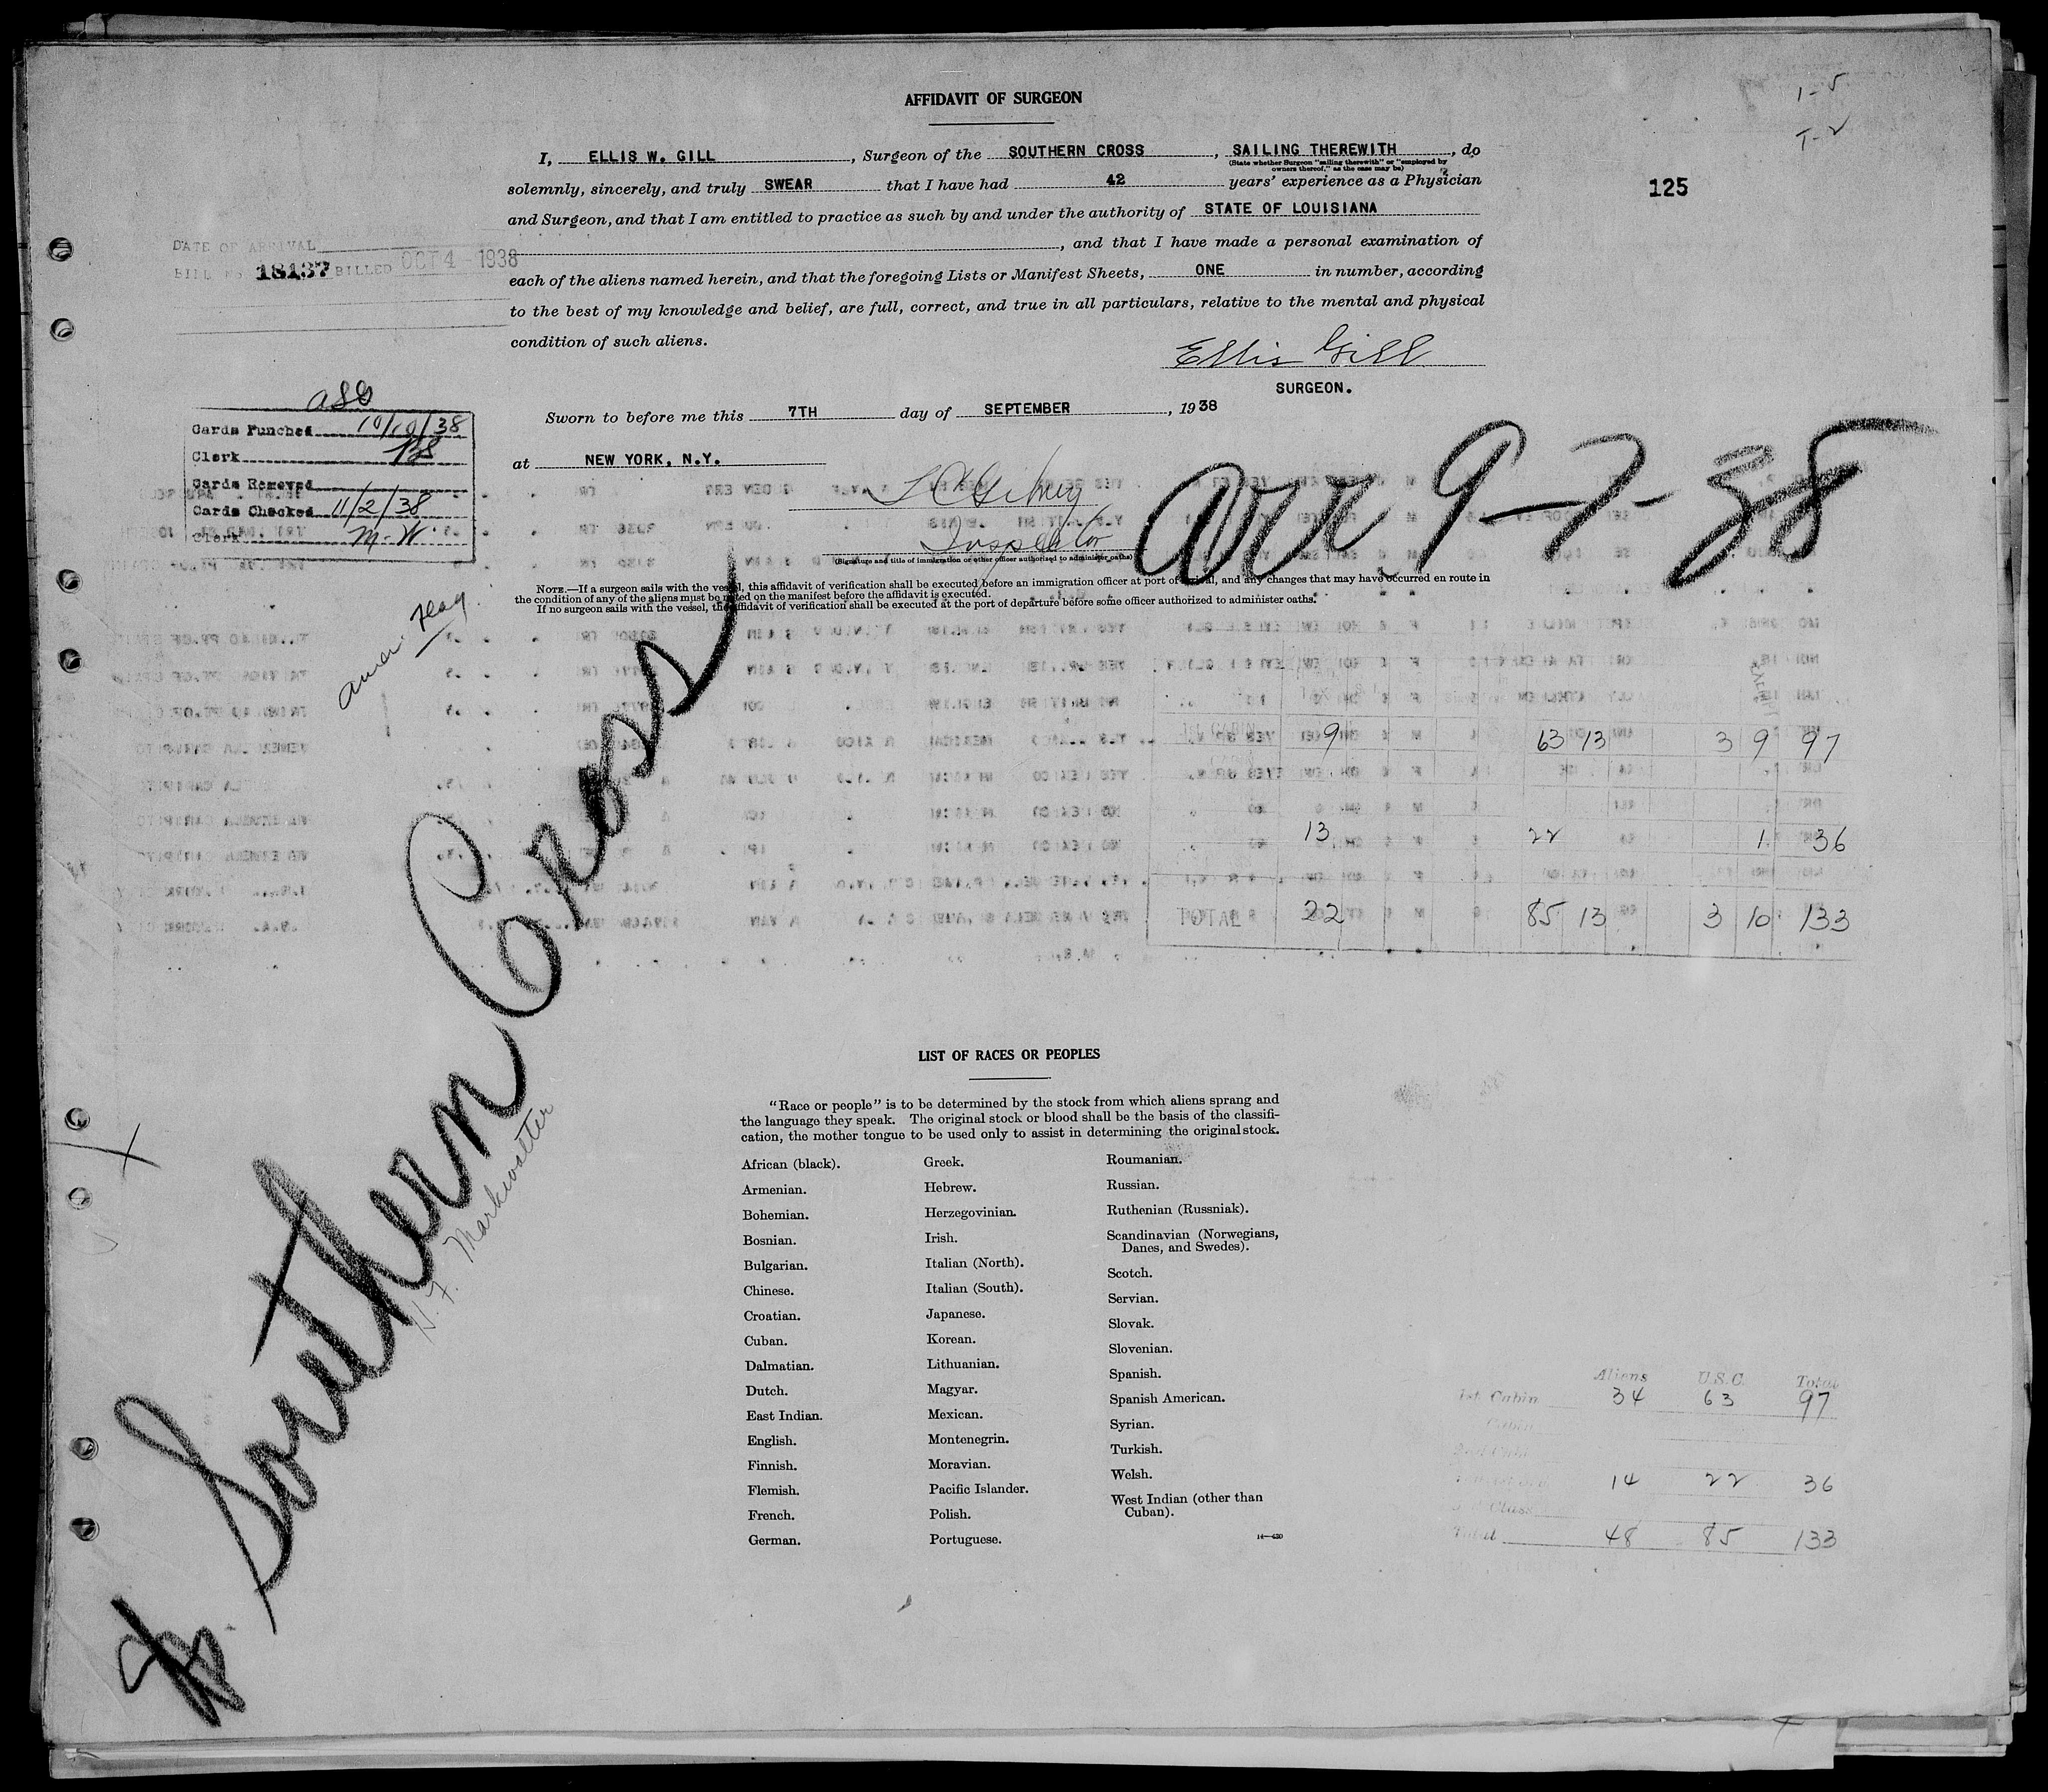 AFFIDAVIT OF SURGEON
1-5
T-2
I, ELLIS W. GILL, Surgeon of the SOUTHERN CROSS, SAILING THEREWITH, do
(State whether Surgeon "sailing therewith" or "employed by
owners thereof," as the case may be)
solemnly, sincerely, and truly SWEAR that I have had 42 years' experience as a Physician
125
and Surgeon, and that I am entitled to practice as such by and under the authority of STATE OF LOUISIANA
, and that I have made a personal examination of
DATE OF ARRIVAL
BILL NO 18137 BILLED OCT 4 1938
each of the aliens named herein, and that the foregoing Lists or Manifest Sheets, ONE in number, according
to the best of my knowledge and belief, are full, correct, and true in all particulars, relative to the mental and physical
condition of such aliens.
Ellis Gill
SURGEON.
Sworn to before me this 7TH day of SEPTEMBER, 1938
at NEW YORK, N.Y.
Inspector
(Signature and title of immigration or other officer authorized to administer oaths)
Arr. 9-7-38
Cards Punched 10/10/38
Clerk
Cards Removed
Cards Checked 11/2/38
Clerk M.W.
NOTE.—If a surgeon sails with the vessel, this affidavit of verification shall be executed before an immigration officer at port of arrival, and any changes that may have occurred en route in
the condition of any of the aliens must be noted on the manifest before the affidavit is executed.
If no surgeon sails with the vessel, the affidavit of verification shall be executed at the port of departure before some officer authorized to administer oaths.
Amer Flag.
Southern Cross
H. F. Markwalter
9 63 13 3 9 97
13 22 1 36
TOTAL 22 85 13 3 10 133
LIST OF RACES OR PEOPLES
"Race or people" is to be determined by the stock from which aliens sprang and
the language they speak. The original stock or blood shall be the basis of the classifi-
cation, the mother tongue to be used only to assist in determining the original stock.
African (black).
Armenian.
Bohemian.
Bosnian.
Bulgarian.
Chinese.
Croatian.
Cuban.
Dalmatian.
Dutch.
East Indian.
English.
Finnish.
Flemish.
French.
German.
Greek.
Hebrew.
Herzegovinian.
Irish.
Italian (North).
Italian (South).
Japanese.
Korean.
Lithuanian.
Magyar.
Mexican.
Montenegrin.
Moravian.
Pacific Islander.
Polish.
Portuguese.
Roumanian.
Russian.
Ruthenian (Russniak).
Scandinavian (Norwegians,
Danes, and Swedes).
Scotch.
Servian.
Slovak.
Slovenian.
Spanish.
Spanish American.
Syrian.
Turkish.
Welsh.
West Indian (other than
Cuban).
14—430
Aliens U.S.C. Total
1st Cabin 34 63 97
Cabin
14 22 36
Class
Total 48 85 133